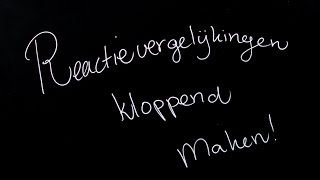 Reactievergelijkingen
kloppend
maken!